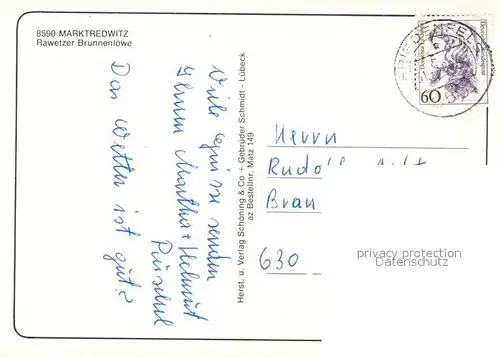 8590 MARKTREDWITZ
Rawetzer Brunnenlöwe
Viele Grüsse senden
Ihnen Martha + Helmut
Püschel
Das Wetter ist gut!
Herst. u. Verlag Schöning & Co + Gebrüder Schmidt - Lübeck
az Bestellnr. Matz 149
60
Herrn
Rudol
Bran
630
privacy protection
Datenschutz